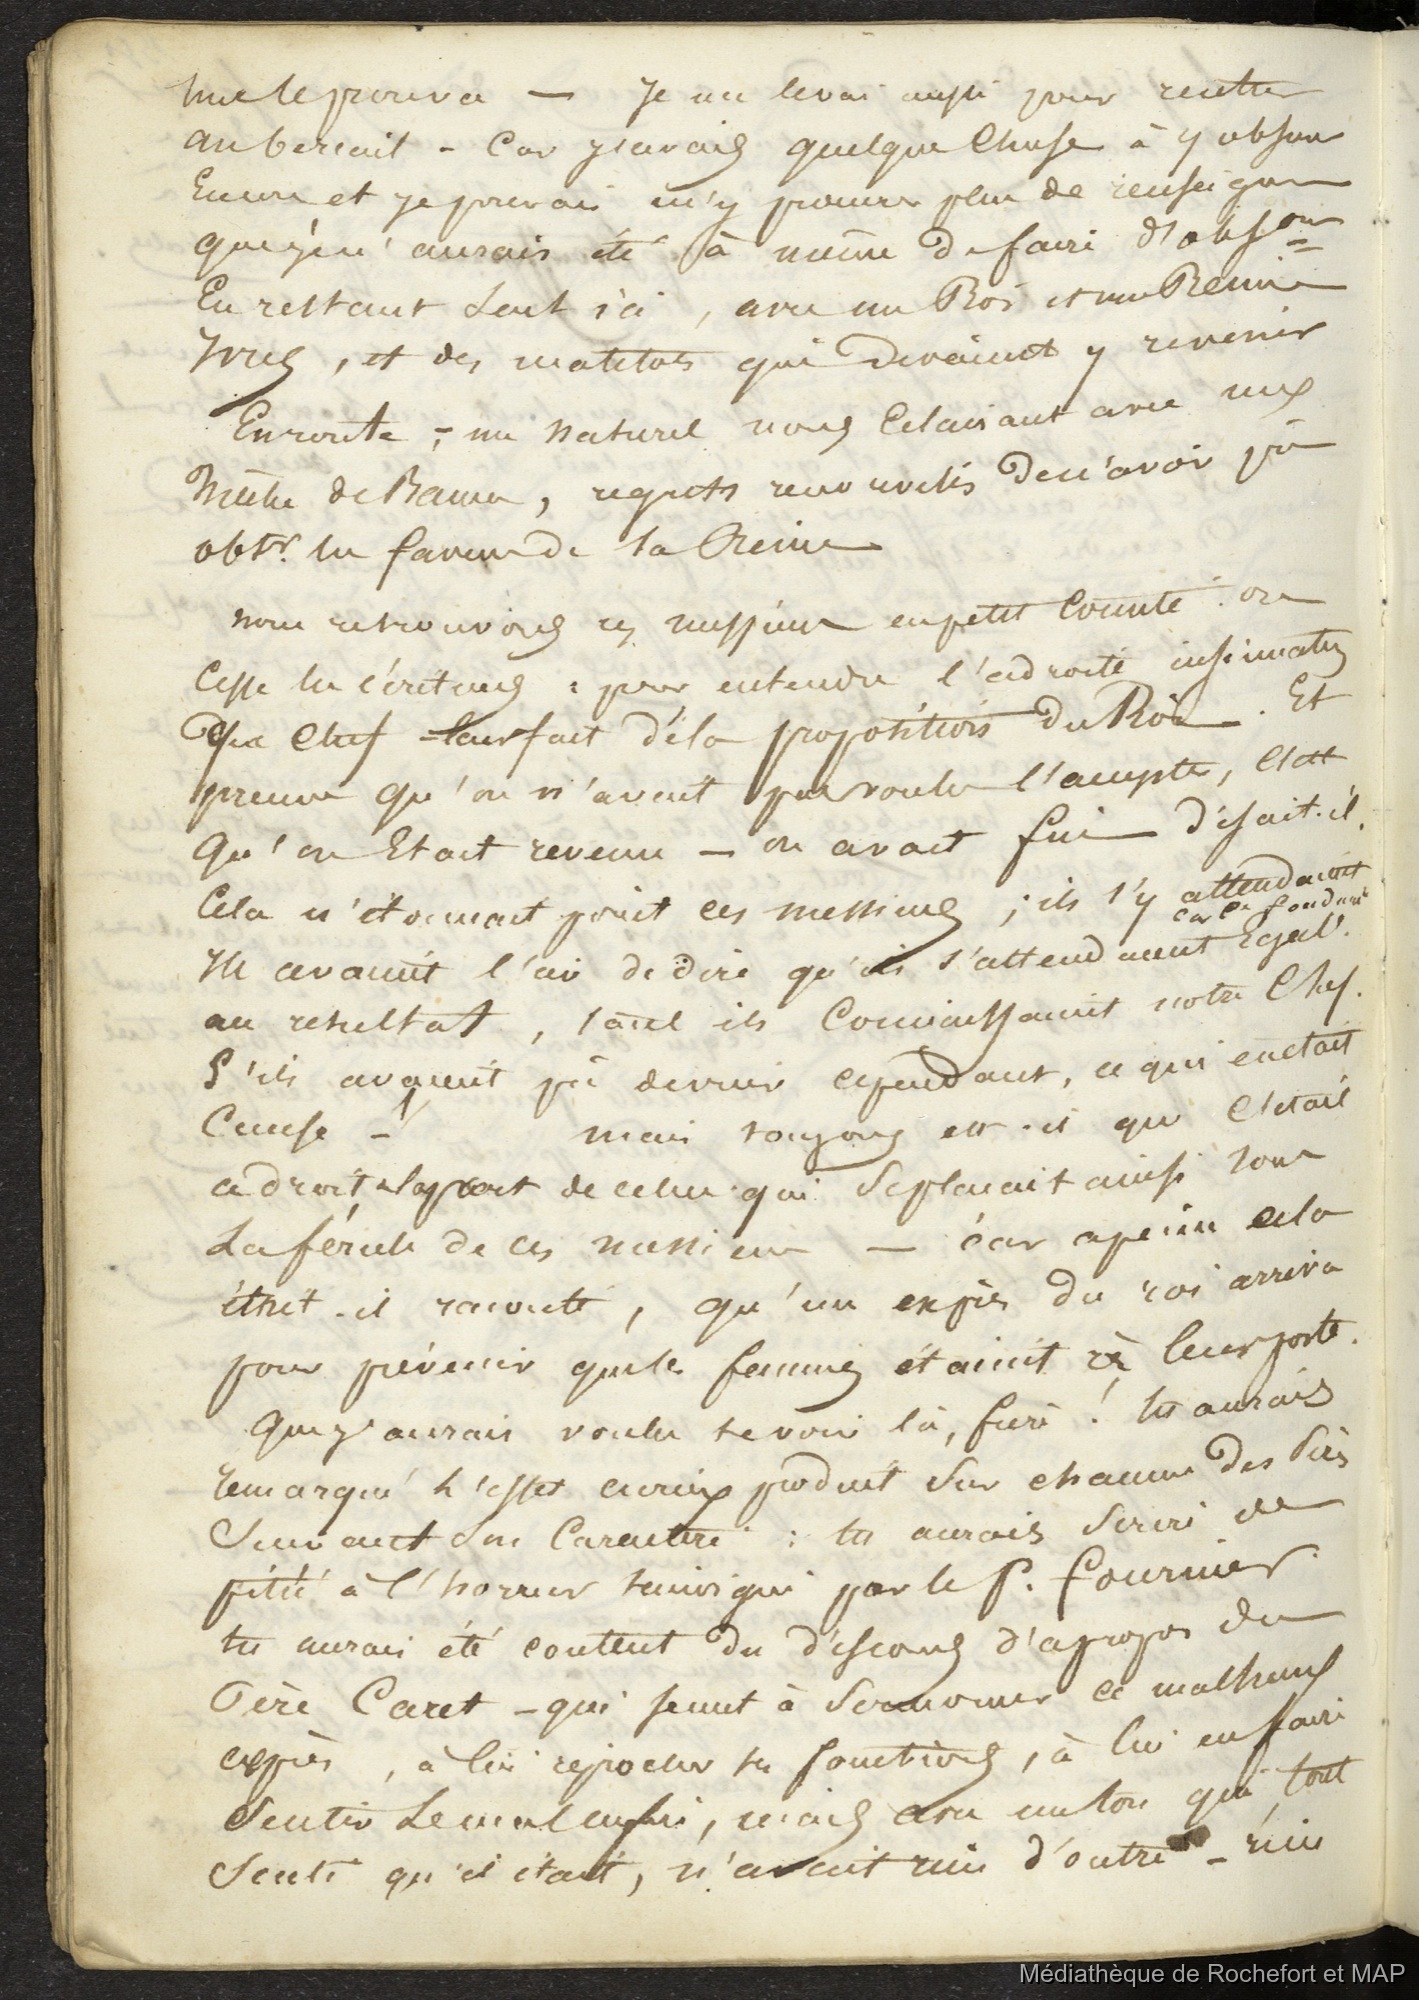 me le prouva — Je me levai aussi pour rentrer
au bercail - Car j'avais quelque chose à y observer
Encore et je pouvais m'y procurer plus de renseign
que je n'aurais été à même de faire d'obs.ons
En restant seul ici, avec un Roi et une Reine
Ivres, et des matelots qui devaient y revenir
En route ; un naturel nous Eclairant avec une
Mèche de Bancou, regrets renouvelés de n'avoir pû
obtr. les faveurs de la Reine
nous retrouvons ces messieurs en petit Comité. on
Cesse les écritures : pour entendre l'adroite insinuation
Que Chef leur fait de la proposition du Roi. Et
preuve qu'on n'avait pas voulu l'accepter, c'est
Qu'on Etait revenu — on avait fui disait-il.
Cela n'étonnait point ces messieurs ; ils s'y attendaient
Ils avaient l'air de dire qu'ils s'attendaient Egalt.
au resultat, tant ils Connaissaient notre Chef.
S'ils avaient pû deviner cependant, ce qui en était
Cause - ! mais toujours est-il que C'était
adroit de la part de celui qui se plaçait ainsi sous
La férule de ces messieurs — car à peine cela
était-il raconté, qu'un exprès du roi arriva
pour prévenir que les femmes étaient à leur porte.
Que j'aurais voulu te voir là, frère ! tu aurais
remarqué l'effet curieux produit sur chacun des Pères
Suivant son Caractère : tu aurais souri de
pitié à l'horreur témoignée par le P. fournier
tu aurais été content du discours d'apropos du
Père Caret - qui se mit à sermonner ce malheureux
exprès, à lui reprocher ses fonctions, à lui en faire
Sentir Le mal enfin, mais avec un ton qui, tout
Senti qu'il était, n'avait rien d'outré - rien
Médiathèque de Rochefort et MAP